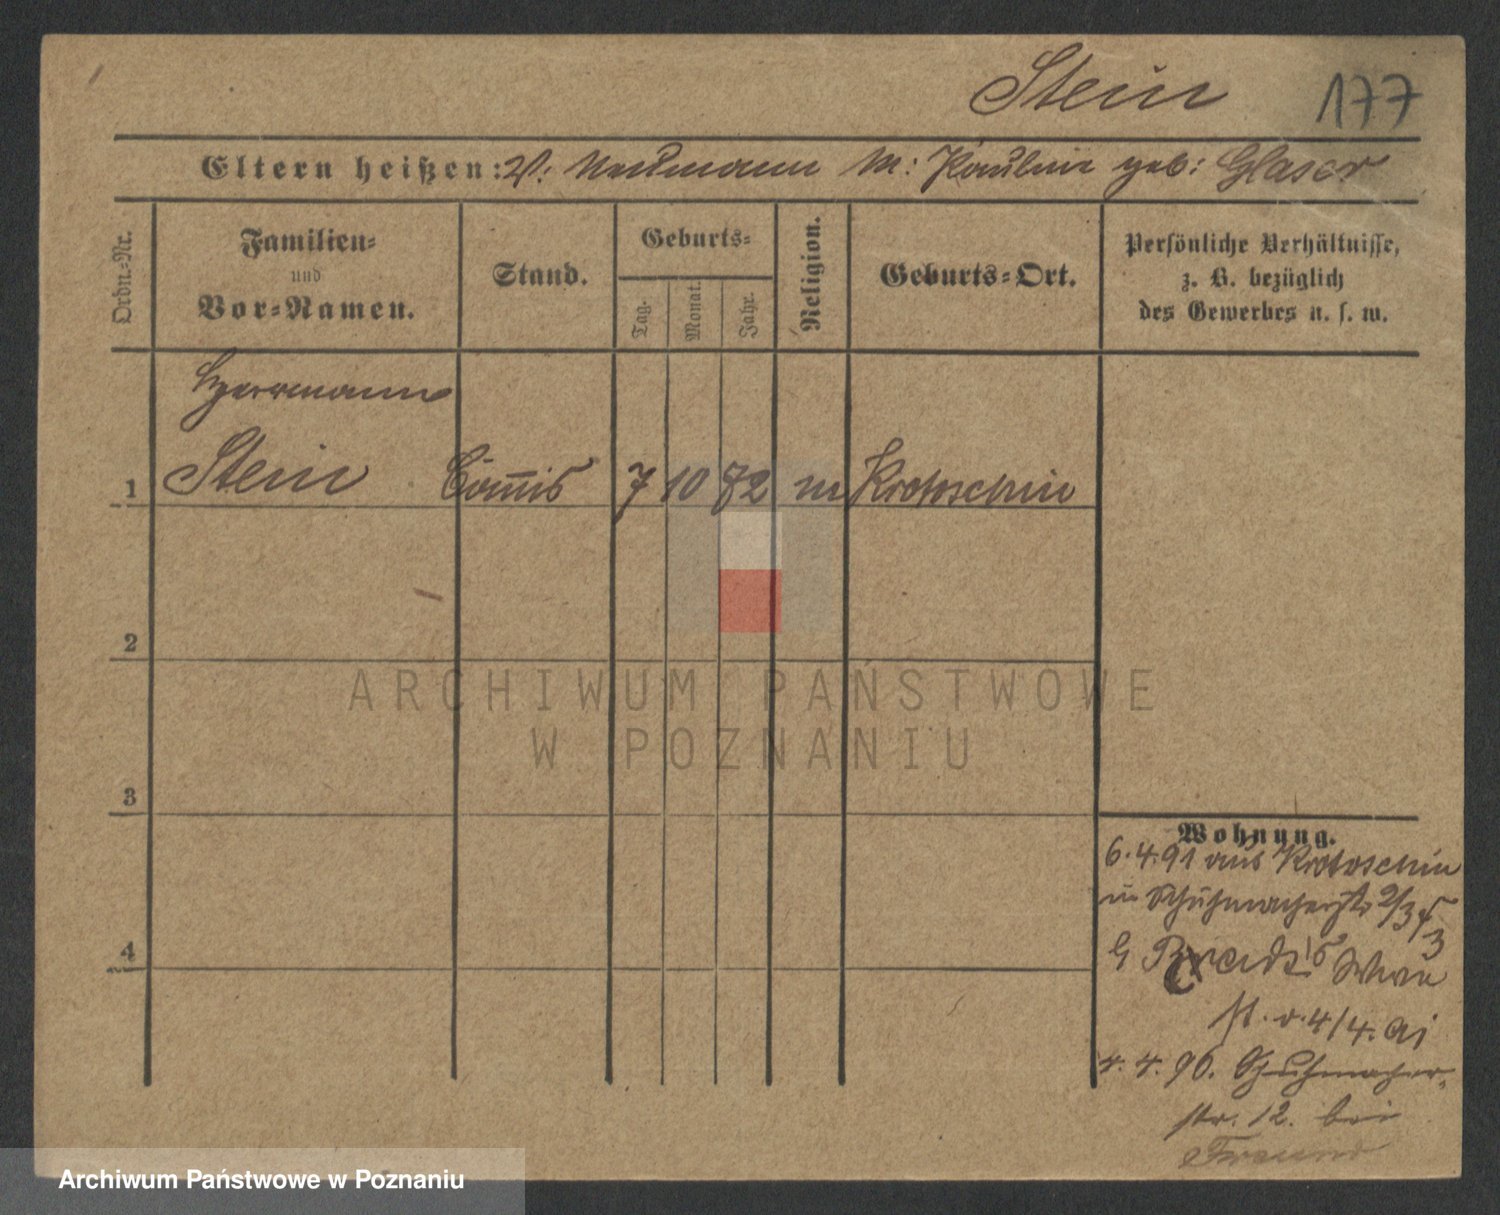 Stein 177
Eltern heißen: V: Neumann M: Pauline geb: Glaser
Ordn.=Nr.
Familien=
und
Vor=Namen.
Stand.
Geburts=
Tag.
Monat.
Jahr.
Religion.
Geburts=Ort.
Persönliche Verhältnisse,
z. B. bezüglich
des Gewerbes u. s. w.
Herrmann
1 Stein Com̄is 7 10 72 m Krotoschin
2
3
4
Wohnung.
6.4.91 aus Krotoschin
Schuhmacherstr
st. v. 4/4.
4. 4. 96. Schuhmacher-
str. 12. bei
Freund
ARCHIWUM PAŃSTWOWE
W POZNANIU
Archiwum Państwowe w Poznaniu